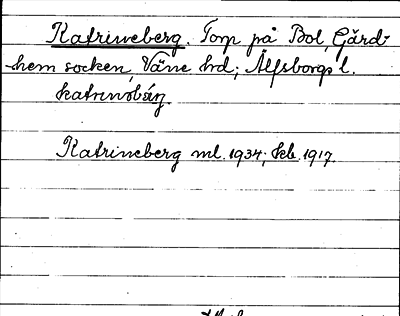 Katrineberg. Torp på Bol, Gärd-
hem socken, Väne hd; Älfsborgs l.
Katrineberg ml. 1934; kb 1917.